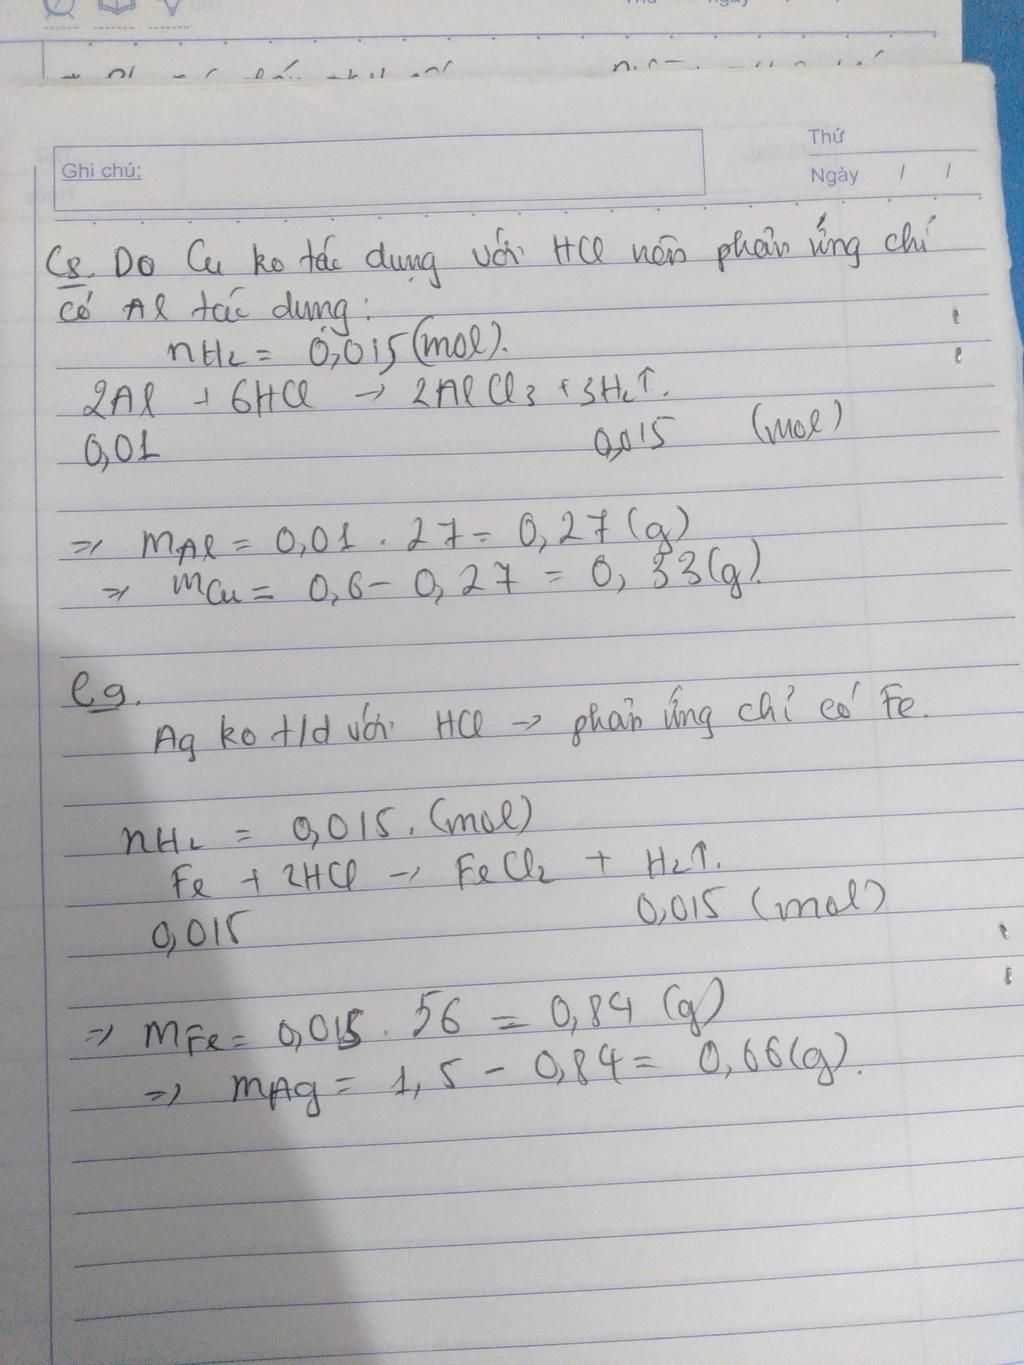 Thứ ngày
Ghi chú:
Thứ
Ngày / /
C8. Do Cu ko tác dụng với HCl nên phản ứng chỉ
có Al tác dụng:
nH₂ = 0,015 (mol).
2Al + 6HCl → 2AlCl₃ + 3H₂↑.
0,01 0,015 (mol)
=> mAl = 0,01 . 27 = 0,27 (g)
=> mCu = 0,6 - 0,27 = 0,33 (g).
C9.
Ag ko t/d với HCl → phản ứng chỉ có Fe.
nH₂ = 0,015. (mol)
Fe + 2HCl → FeCl₂ + H₂↑.
0,015 0,015 (mol)
=> mFe = 0,015 . 56 = 0,84 (g)
=> mAg = 1,5 - 0,84 = 0,66 (g).